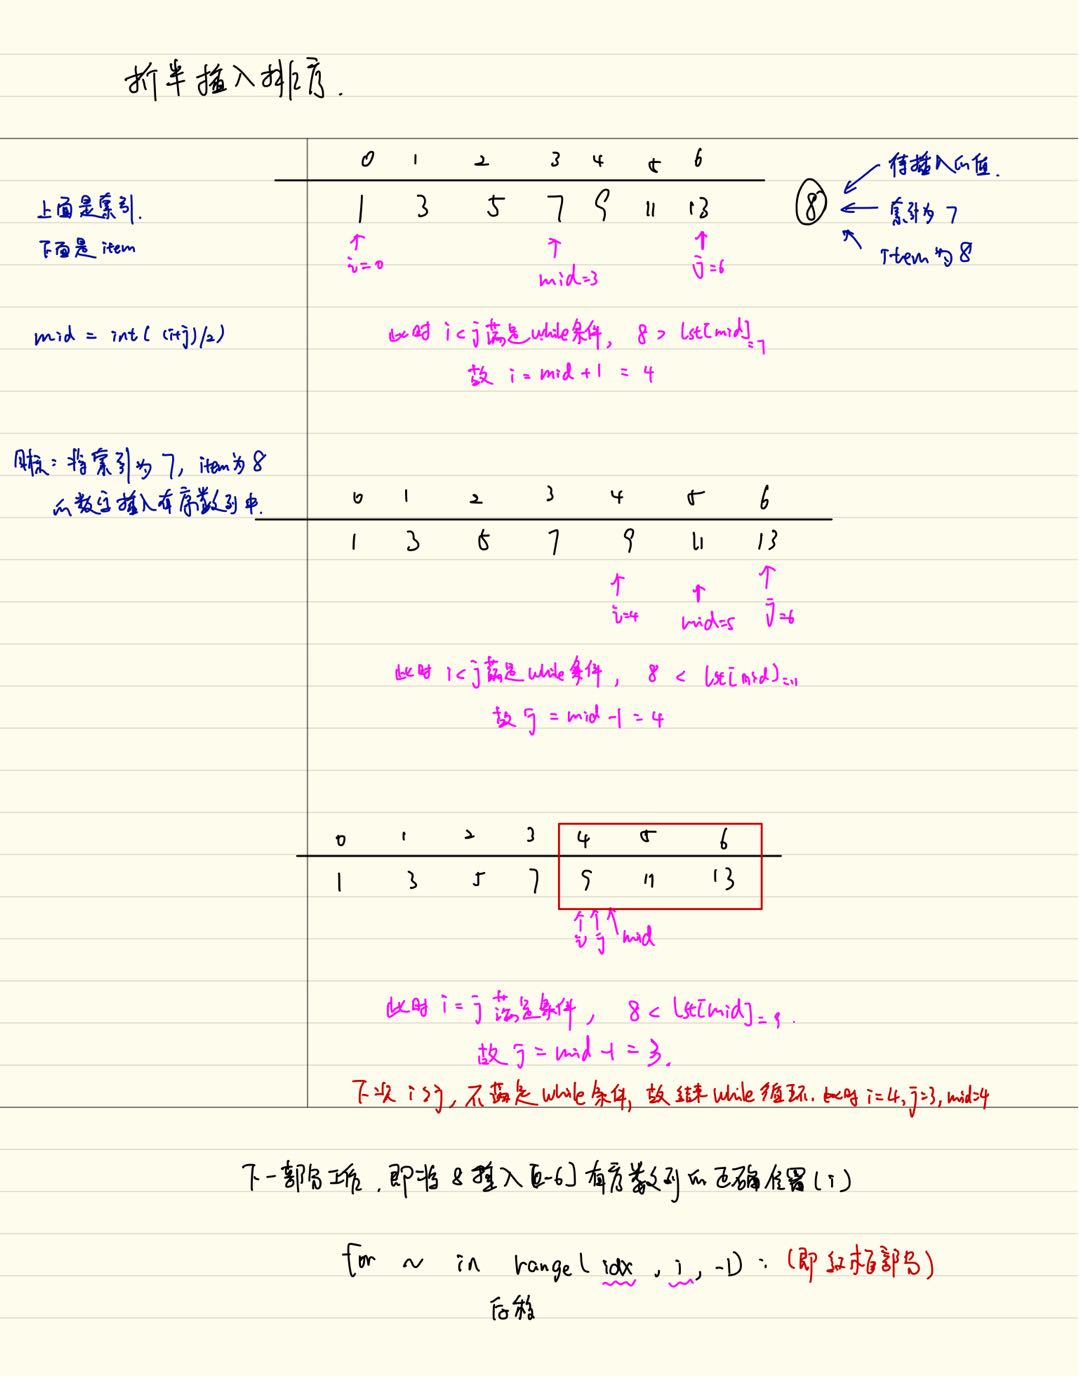 折半插入排序.
0 1 2 3 4 5 6
1 3 5 7 9 11 13 8
待插入的值.
索引为 7
item为 8
上面是索引.
下面是 item
i=0 mid=3 j=6
mid = int( (i+j)/2)
此时 i<j 满足while条件, 8 > lst[mid]=7
故 i = mid+1 = 4
目标: 将索引为 7, item为 8
的数字插入有序数列中.
0 1 2 3 4 5 6
1 3 5 7 9 11 13
i=4 mid=5 j=6
此时 i<j 满足while条件, 8 < lst[mid]=11
故 j = mid-1 = 4
0 1 2 3 4 5 6
1 3 5 7 9 11 13
i j mid
此时 i=j 满足条件, 8 < lst[mid]=9.
故 j = mid-1 = 3.
下次 i>j, 不满足while条件, 故结束while循环. 此时 i=4, j=3, mid=4
下一部分工作, 即将 8 插入[0-6]有序数列的正确位置(i)
for ~ in range( idx , i , -1) : (即红框部分)
后移